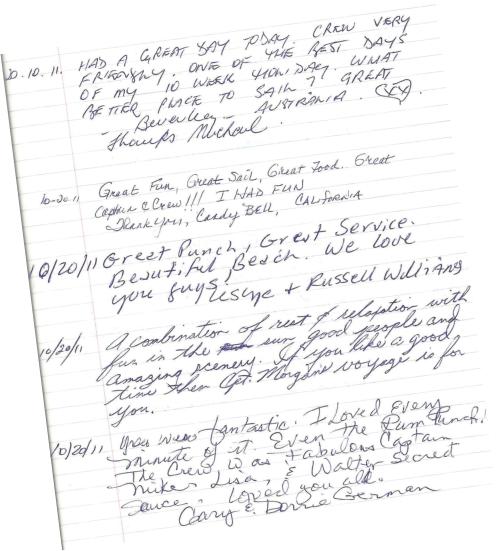 20.10.11. HAD A GREAT DAY TODAY. CREW VERY
FRIENDLY. ONE OF THE BEST DAYS
OF MY 10 WEEK HOLIDAY. WHAT
BETTER PLACE TO SAIL?? GREAT
- Beverley - AUSTRALIA.
Thanks Michael.
10-20-11 Great Fun, Great Sail, Great Food. Great
Captain & Crew!!! I HAD FUN
Thank you, Candy BELL, CALIFORNIA
10/20/11 Great Punch, Great Service.
Beautiful Beach. We love
you guys. Leslye + Russell Williams
10/20/11 A combination of rest & relaxation with
fun in the sun, good people and
amazing scenery. If you like a good
time then Cpt. Morgans voyage is for
you.
10/20/11 You were fantastic. I Loved Every
minute of it. Even the Rum Punch!
The Crew was Fabulous Captain
Mike, Lisa, & Walter Secret
Sauce. Loved you all.
Gary & Donnie German